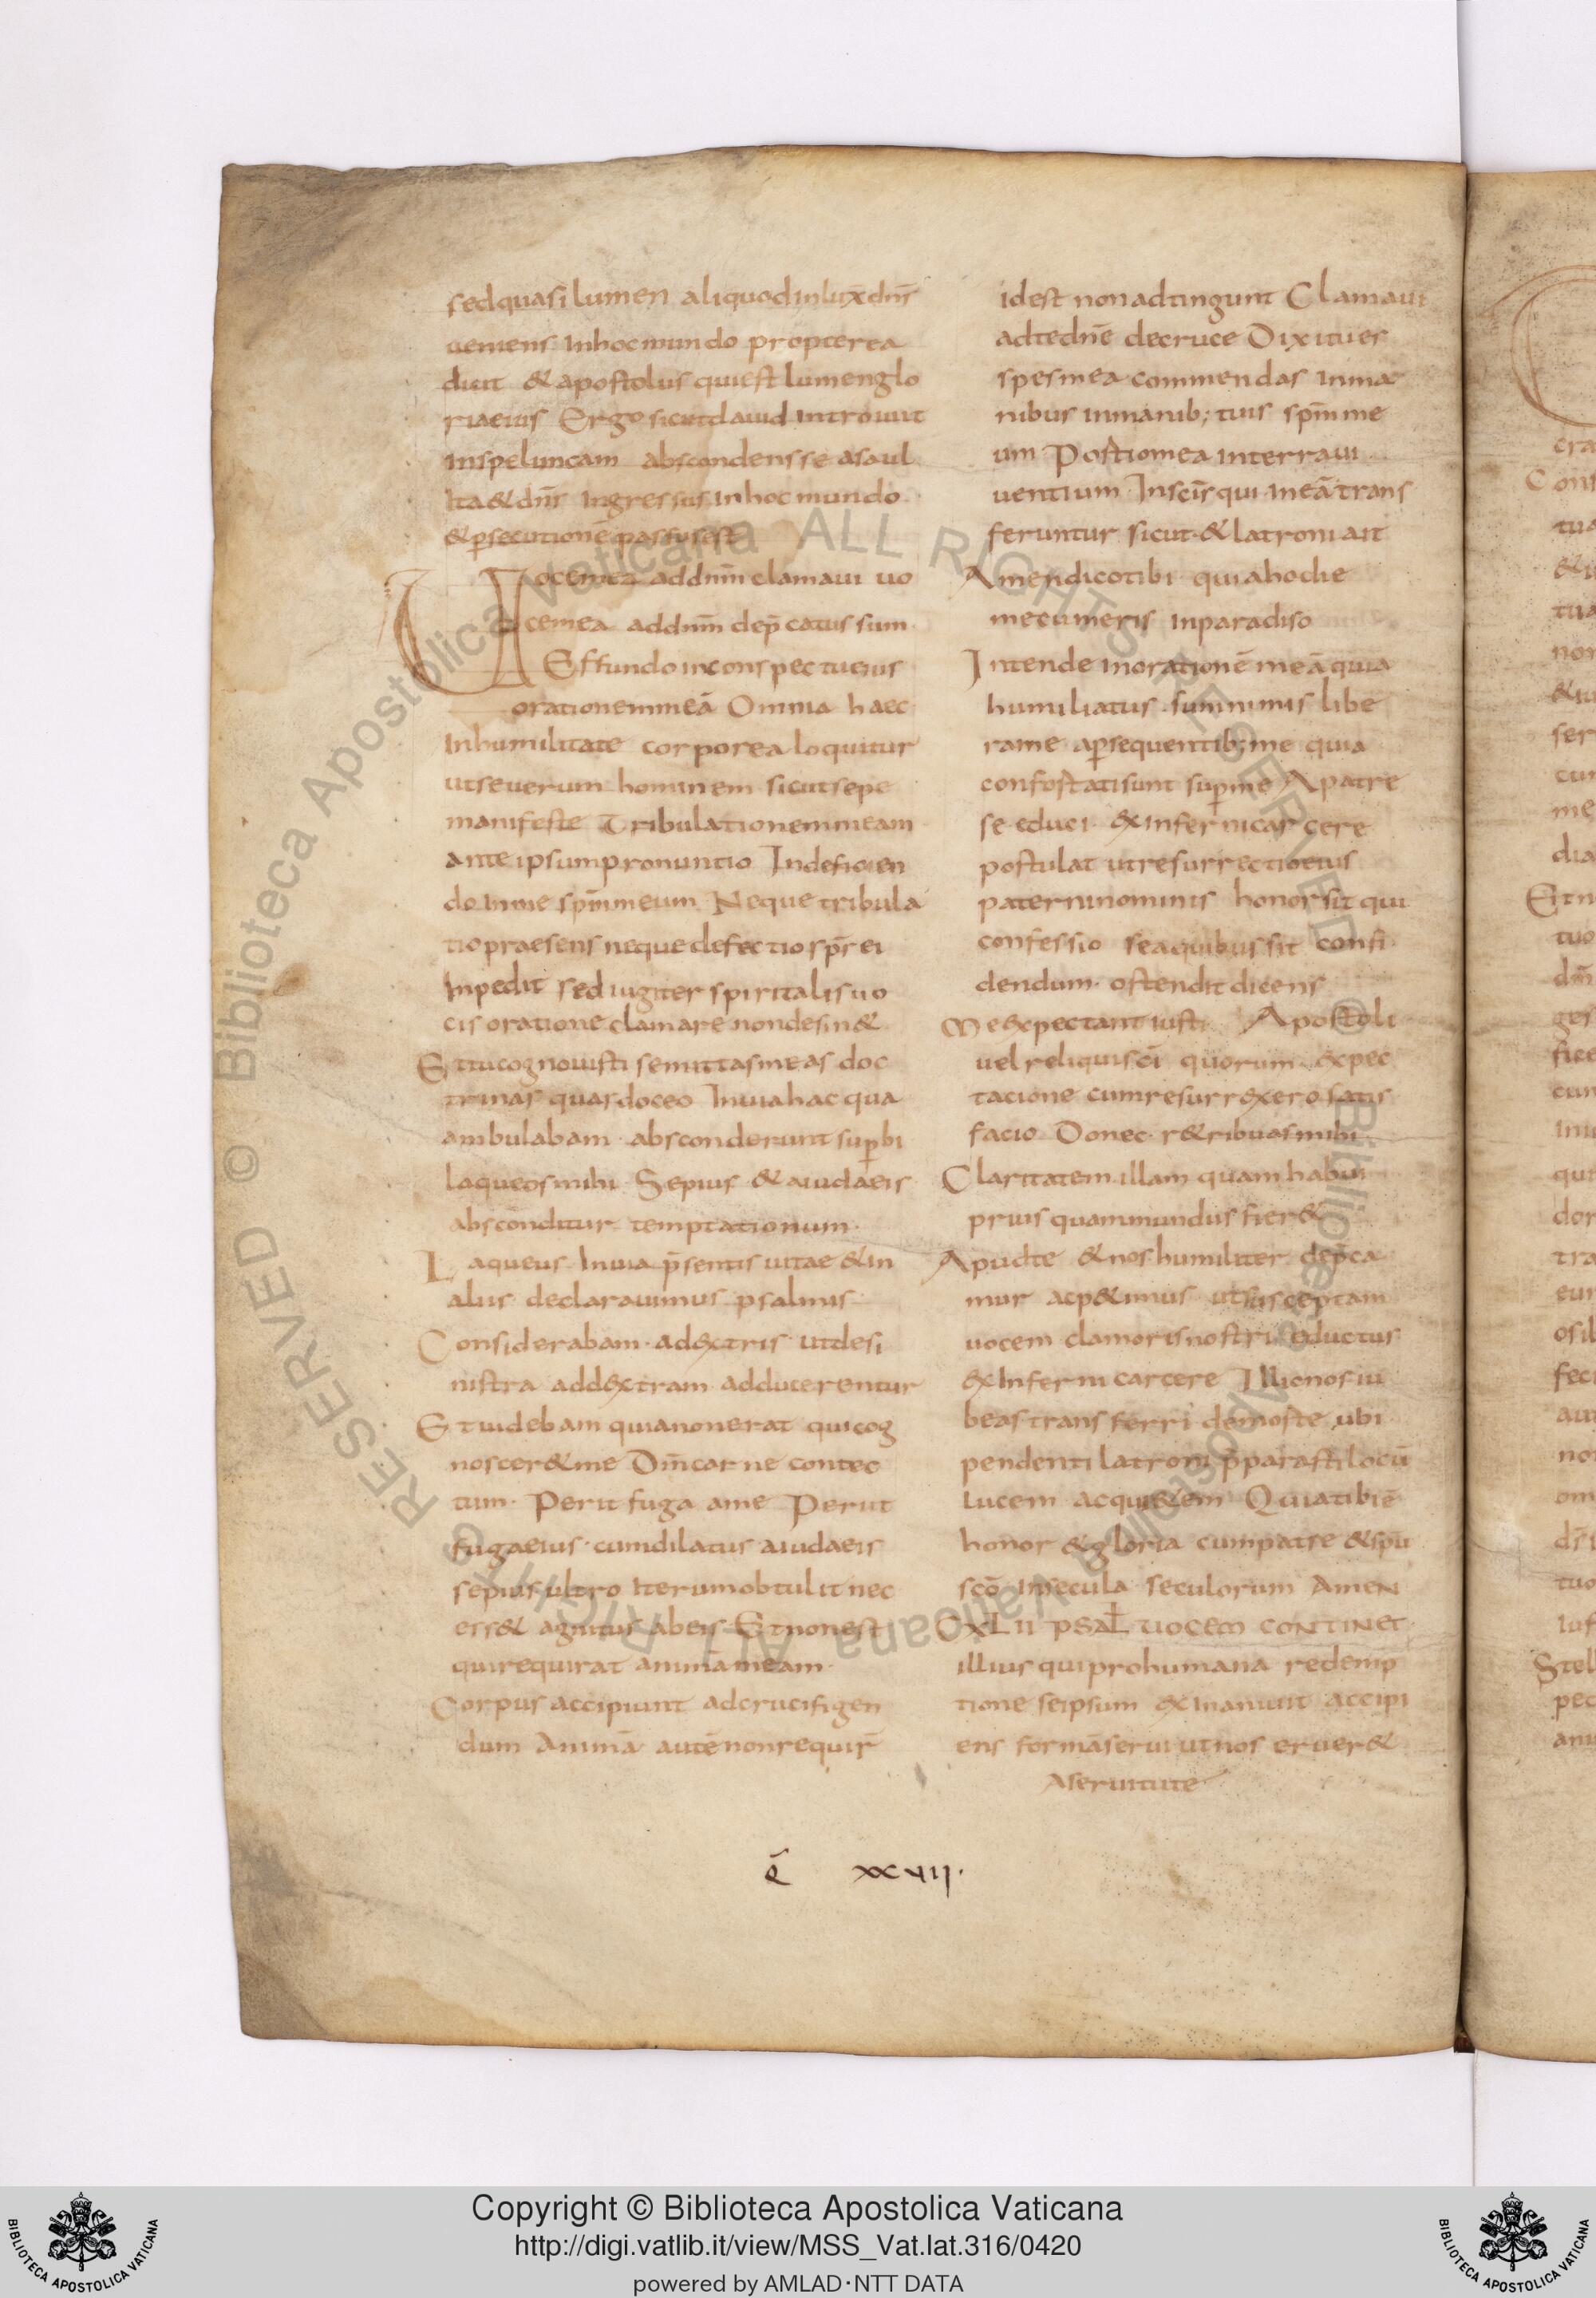 sed quasi lumen aliquod inluxͫ dn̄s
ueniens Inhocmundo propterea
dicit & apostolus qui est lumen glo
riae eius Ergo sicut dauid Introiuit
Inspeluncam abscondens se asaul
Ita & dn̄s Ingressus Inhoc mundo
& ꝑsecutionē passus est
Uocemea addnm̄ clamaui uo
cemea addnm̄ dep̄catus sum
Effundo inconspectu eius
orationemmeā Omnia haec
Inhumilitate corporea loquitur
utseuerum hominem sicut sepe
manifeste Tribulationemmeam
ante ipsum pronuntio Indeficien
do Inme spm̄ meum Neque tribula
tio praesens neque defectio sps̄ ei
Inpedit sed iugiter spiritalis uo
cis oratione clamare nondesin&
Et tu cognouisti semittas meas doc
trinas quas doceo Inuia hac qua
ambulabam absconderunt suꝑbi
laqueos mihi Sepius & aiudaeis
absconditur temptationum
Laqueus Inuia p̄sentis uitae & in
aliis declarauimus psalmis
Considerabam adextris utdesi
nistra addextram adducerentur
Et uidebam quia non erat qui cog
noscer& me Dm̄ carne contec
tum Periit fuga ame Periit
fuga eius cumdilatus aiudaeis
sepius ultro Iterum obtulit nec
ess& agnitus abeis Et non est
qui requirat animā meam
Corpus accipiunt adcrucifigen
dum Animā autē non requir̄
id est non adtingunt Clamaui
adte dnē decruce Dixi tu es
spes mea commendas Inma
nibus Inmanib; tuis spm̄ me
um Postiomea Interra ui
uentium In scīs qui Ineā trans
feruntur sicut & latroni ait
Amen dico tibi quia hodie
mecum eris Inparadiso
Intende Inorationē meā quia
humiliatus sum nimis libe
rame aꝑsequentib; me quia
confostati sunt suꝑme Apatre
se educi & Infernicar cere
postulat utresurrectio eius
paterni nominis honor sit qui
confessio se aquibus sit confi
dendum ostendit dicens
Me expectant iusti Apostoli
uel reliqui scī quorum expec
tacione cumresurrexero satis
facio Donec r&ribuas mihi
Claritatem illam quam habui
prius quam mundus fier&
Apudte & nos humiliter dep̄ca
mur ac p&imus ut susceptam
uocem clamoris nostri eductus
exInferni carcere Illic nos iu
beas transferri de hoste ubi
pendenti latroni p̄parasti locū
lucem ac qui&em Quia tibi ē
honor & gloria cum patre & spū
scō Insecula seculorum AMEN
CXLII PSAL̄ UOCEM CONTINET
illius qui prohumana redemp
tione seipsum exInaniuit accipi
ens formā serui ut nos eruer&
Aseruitute
xxvii.
Copyright © Biblioteca Apostolica Vaticana
http://digi.vatlib.it/view/MSS_Vat.lat.316/0420
powered by AMLAD·NTT DATA
BIBLIOTECA APOSTOLICA VATICANA
BIBLIOTECA APOSTOLICA VATICANA